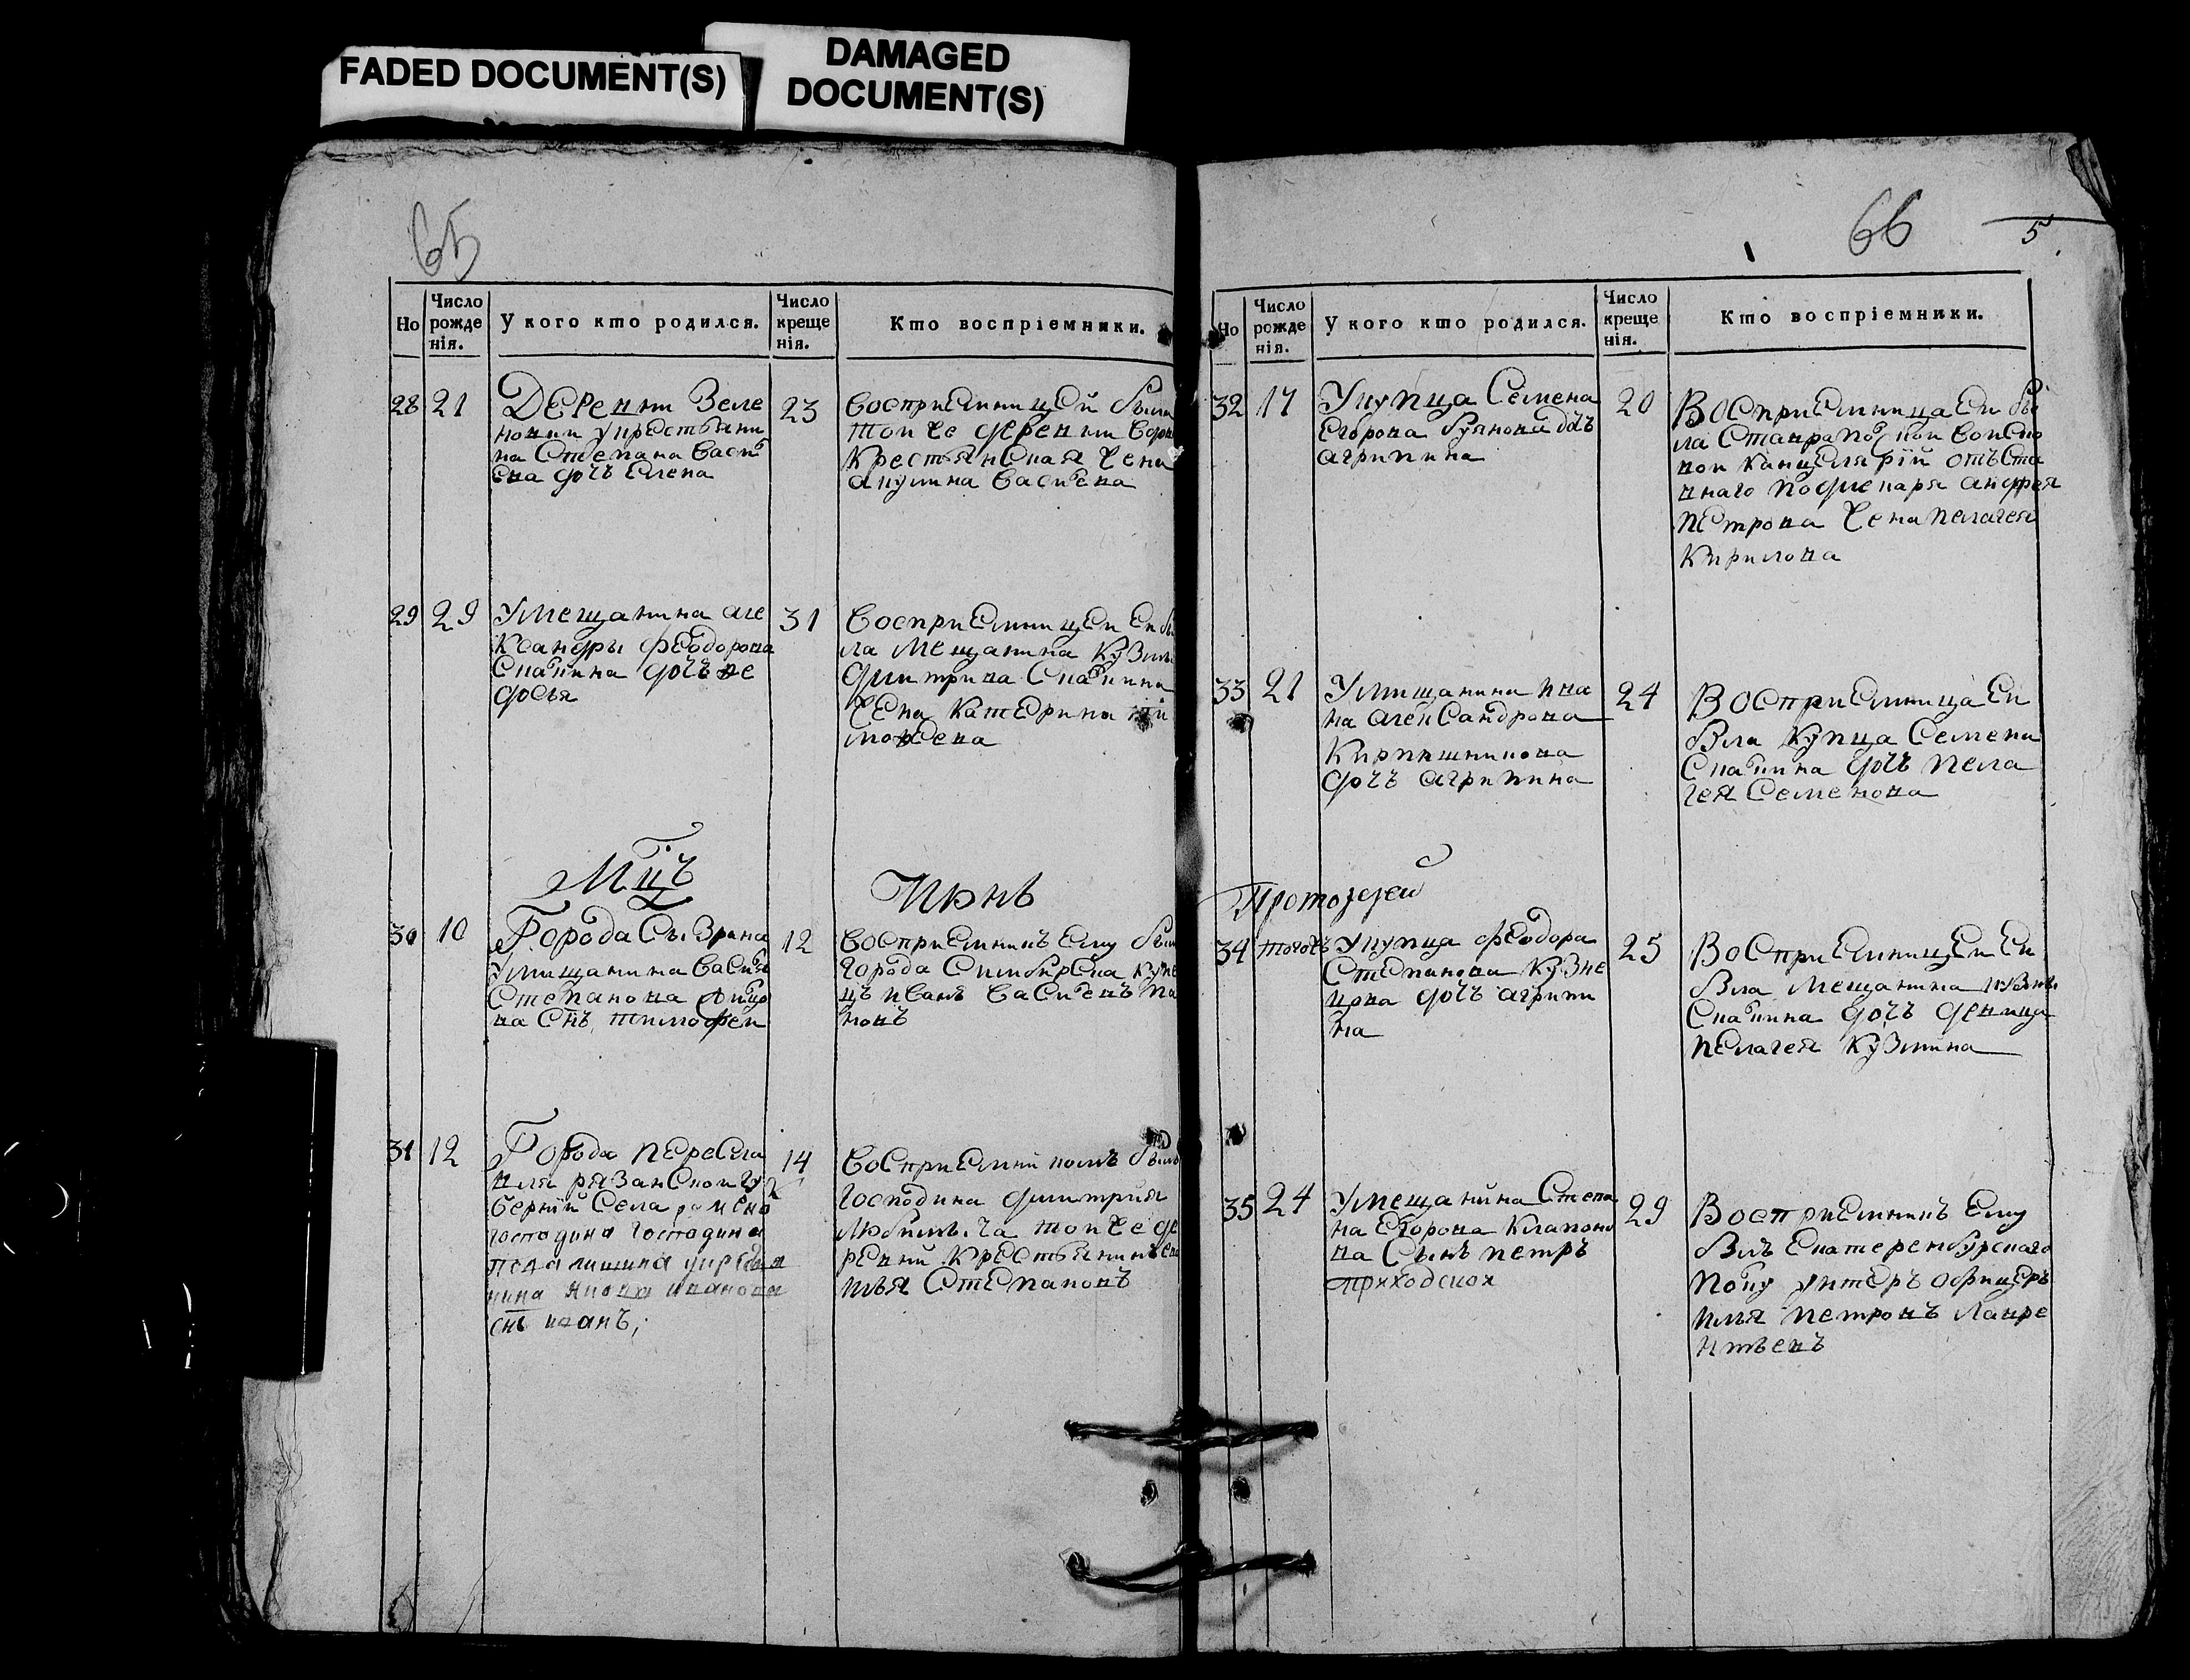 FADED DOCUMENT(S)
DAMAGED
DOCUMENT(S)
65
Но
Число
рожде
нія.
У кого кто родился.
Число
креще
нія.
Кто воспріемники.
28
21
Деревни Зеле
новки укрестьяни
на Степана Васи
ева дочь Елена
23
воспрИемницей была
тои же деревни
крестьянская жена
Акулина Васиева
29
29
Умещанина але
ксандры феодорова
Скапина дочь
досья
31
воспрИемницеи еи бы
ла мещанина Кузмы
дмитрива Скапина
жена катерина
Мцъ
Июнь
30
10
Города Сызрана
умищанина Васи
Степанова
ва Снъ тимофеи
12
восприемникъ ему былъ
города Симбирска купе
цъ иванъ васиевъ па
новъ
31
12
Города пересла
вля рязанскои гу
бернии Села
господина господина
укрестья
нина иванова
снъ иванъ,
14
восприемникомъ былъ
господина дмитрия
тои же де
ревни крестьянинъ
илья Степановъ
66
5
Но
Число
рожде
нія.
У кого кто родился.
Число
креще
нія.
Кто воспріемники.
32
17
Укупца Семена
Егорова дчъ
агрипина
20
Восприемница еи бы
ла Ставропоской воиско
вои канцелярїи отъ Ста
внаго андрея
петрова жена пелагея
Кирилова
33
21
Умищанина ива
на александрова
Кирпишникова
дочь агрипина
24
Восприемница еи
Была купца Семена
Скапина дочь пела
гея Семенова
Протоиерей
34
тогожъ
укупца феодора
Степанова Кузне
цова дочь агрипи
на
25
Восприемницеи еи
Была мещанина кузмы
Скапина дочь девица
пелагея кузмина
35
24
Умещанина Степа
на егорова
ва Сынъ петръ
приходскоя
29
Восприемникъ ему
Былъ екатеренбурскаго
полку унтеръ офицеръ
илья петровъ лавре
нтьевъ